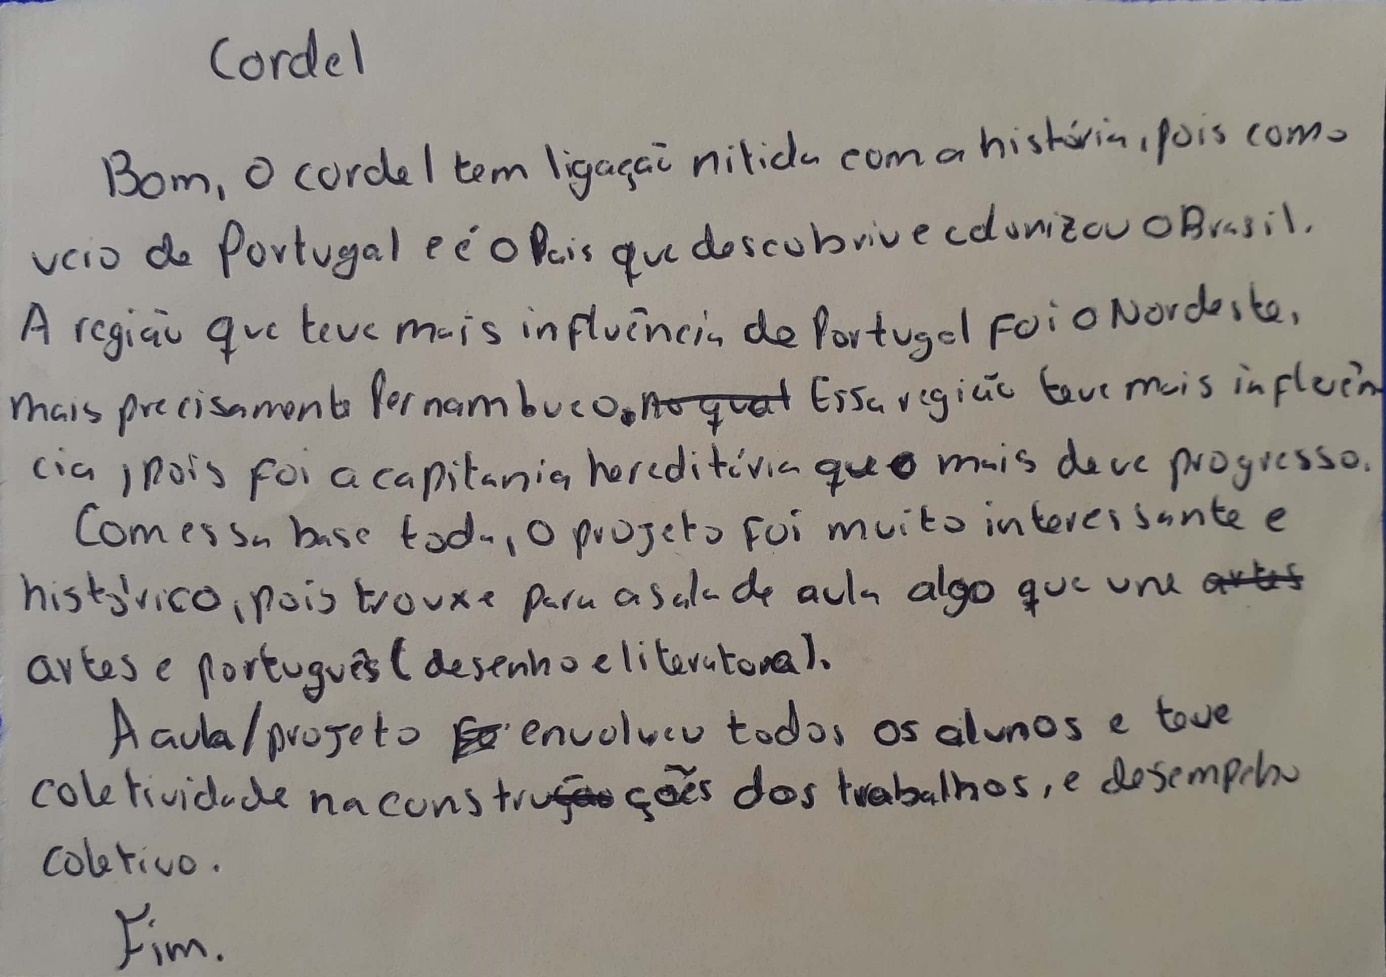 Cordel
Bom, o cordel tem ligação nitida com a história, pois como
veio de Portugal e é o País que descobriu e colonizou o Brasil.
A região que teve mais influência de Portugal foi o Nordeste,
mais precisamente Pernambuco. no qual Essa região teve mais influên
cia, pois foi a capitania hereditária que mais deve progresso.
Com essa base toda, o projeto foi muito interessante e
histórico, pois trouxe para a sala de aula algo que une artes
artes e português (desenho e literatura).
A aula/projeto envolveu todos os alunos e teve
coletividade na construções dos trabalhos, e desempenho
coletivo.
Fim.